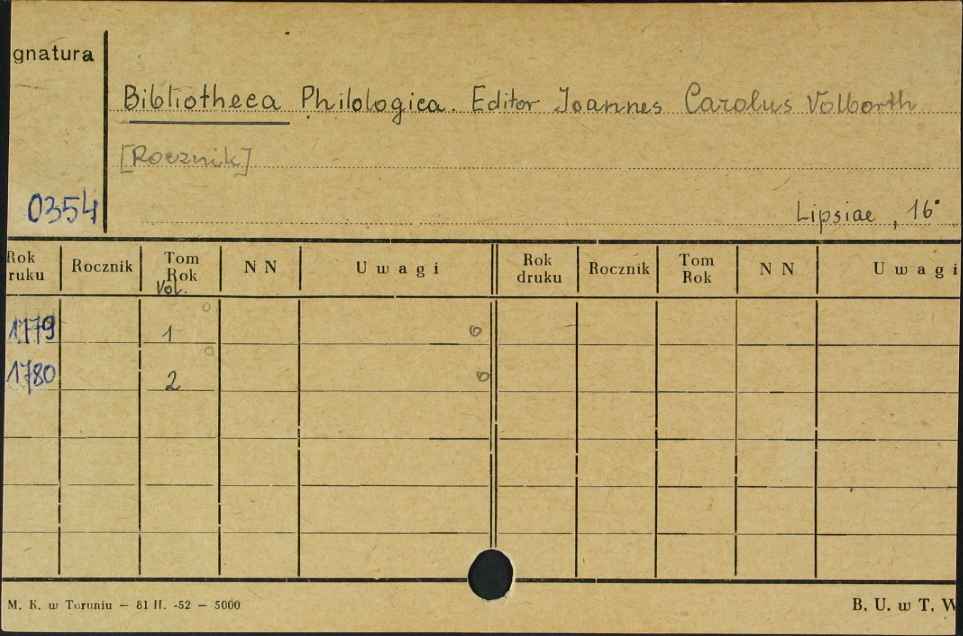 gnatura
Bibliotheca Philologica. Editor Joannes Carolus Volborth
[Rocznik]
0354
Lipsiae, 16°
Rok ruku Rocznik Tom Rok NN Uwagi Rok druku Rocznik Tom Rok NN Uwagi
Vol.
1779 1
1780 2
M. K. w Toruniu — 81 II. -52 — 5000
B. U. w T. W